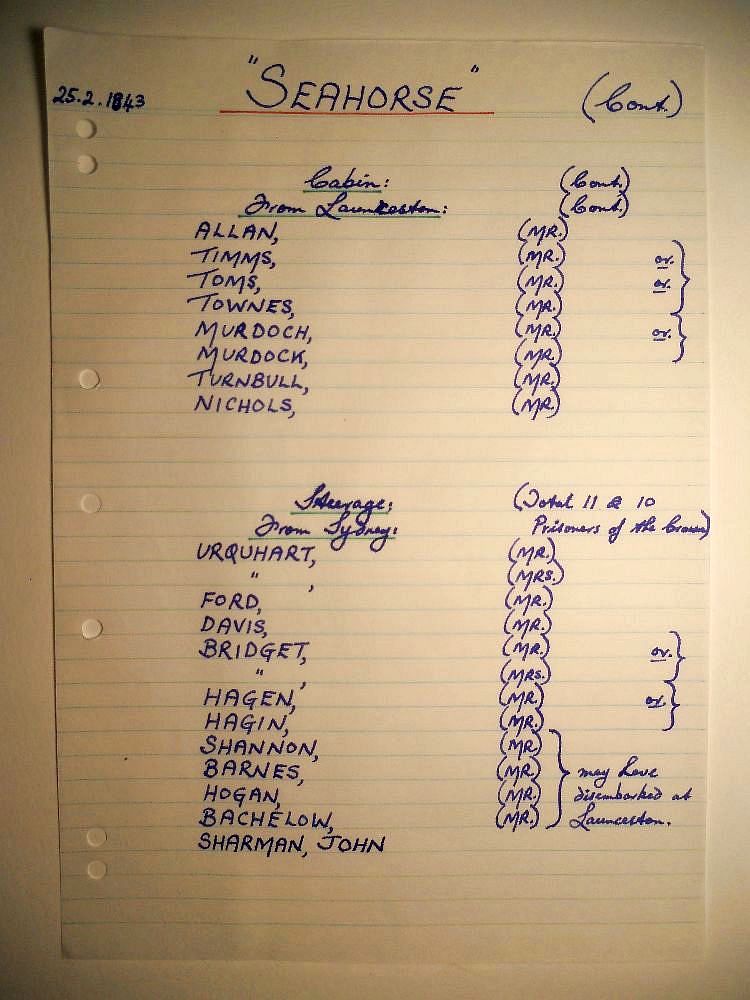 25.2.1843 "SEAHORSE" (Cont.)
Cabin: (Cont.)
From Launceston: (Cont.)
ALLAN, (MR.)
TIMMS, (MR.) or.
TOMS, (MR.) or.
TOWNES, (MR.)
MURDOCH, (MR.) or.
MURDOCK, (MR.)
TURNBULL, (MR.)
NICHOLS, (MR.)
Steerage: (Total 11 & 10
From Sydney: Prisoners of the Crown)
URQUHART, (MR.)
" , (MRS.)
FORD, (MR.)
DAVIS, (MR.)
BRIDGET, (MR.) or.
" , (MRS.)
HAGEN, (MR.) or
HAGIN, (MR.)
SHANNON, (MR.)
BARNES, (MR.) may have
HOGAN, (MR.) disembarked at
BACHELOW, (MR.) Launceston.
SHARMAN, JOHN